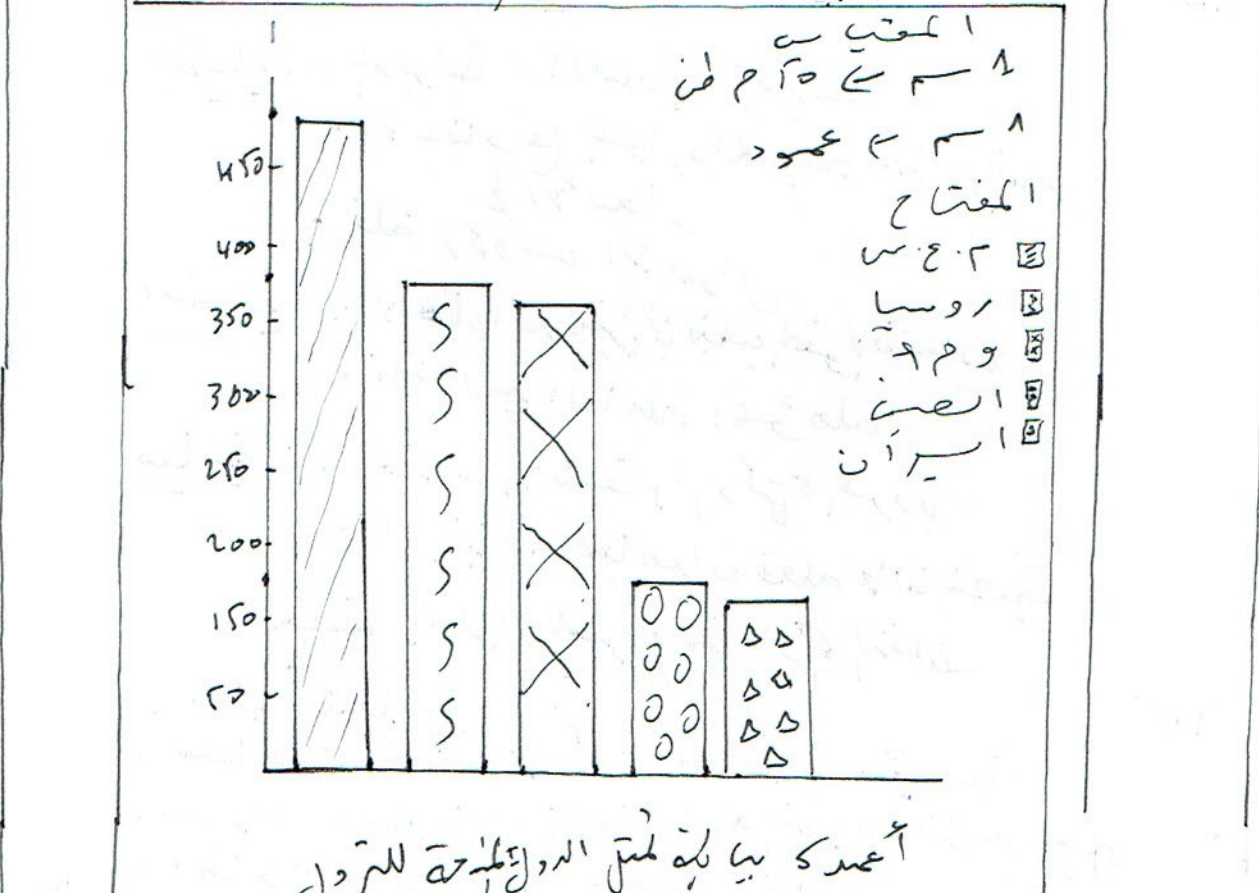 المقياس
1 سم → 50 م طن
1 سم → عمود
المفتاح
م.ع.س
روسيا
و م أ
الصين
إيران
450
400
350
300
250
200
150
50
أعمدة بيانية تمثل الدول المنتجة للبترول